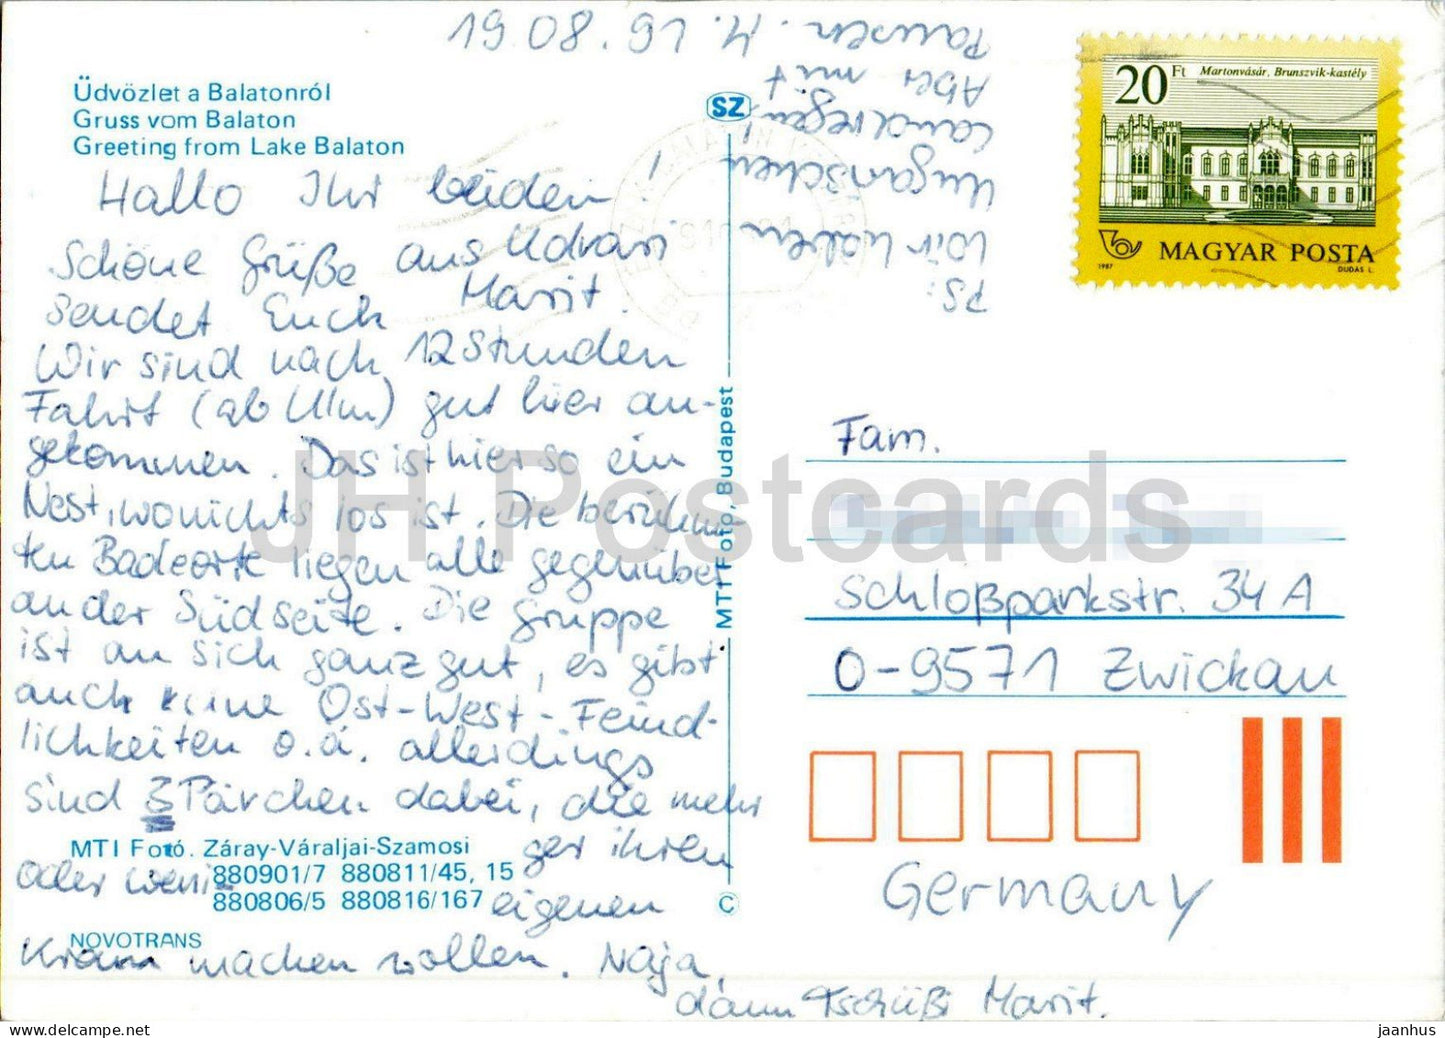 19.08.91
Üdvözlet a Balatonról
Gruss vom Balaton
Greeting from Lake Balaton
SZ
Hallo Ihr beiden!
Schöne Grüße aus Udvari
sendet Euch Marit.
Wir sind nach 12 Stunden
Fahrt (ab Ulm) gut hier an-
gekommen. Das ist hier so ein
Nest, wo nichts los ist. Die berühm-
ten Badeorte liegen alle gegenüber
an der Südseite. Die Gruppe
ist an sich ganz gut, es gibt
auch keine Ost-West-Feind-
lichkeiten o.ä. allerdings
sind 3 Pärchen dabei, die mehr
oder weniger ihren
eigenen
Kram machen wollen. Naja,
dann Tschüß! Marit.
PS:
Wir haben
Ungarischen
Landregen!
Aber mit
Pausen. M.
MTI Fotó. Záray-Váraljai-Szamosi
880901/7 880811/45, 15
880806/5 880816/167
NOVOTRANS
MTI Foto, Budapest
C
20 Ft
Martonvásár, Brunszvik-kastély
MAGYAR POSTA
1987
DUDÁS L.
Fam.
Schloßparkstr. 34 A
O-9571 Zwickau
Germany
JH Postcards
jaanhus © delcampe.net